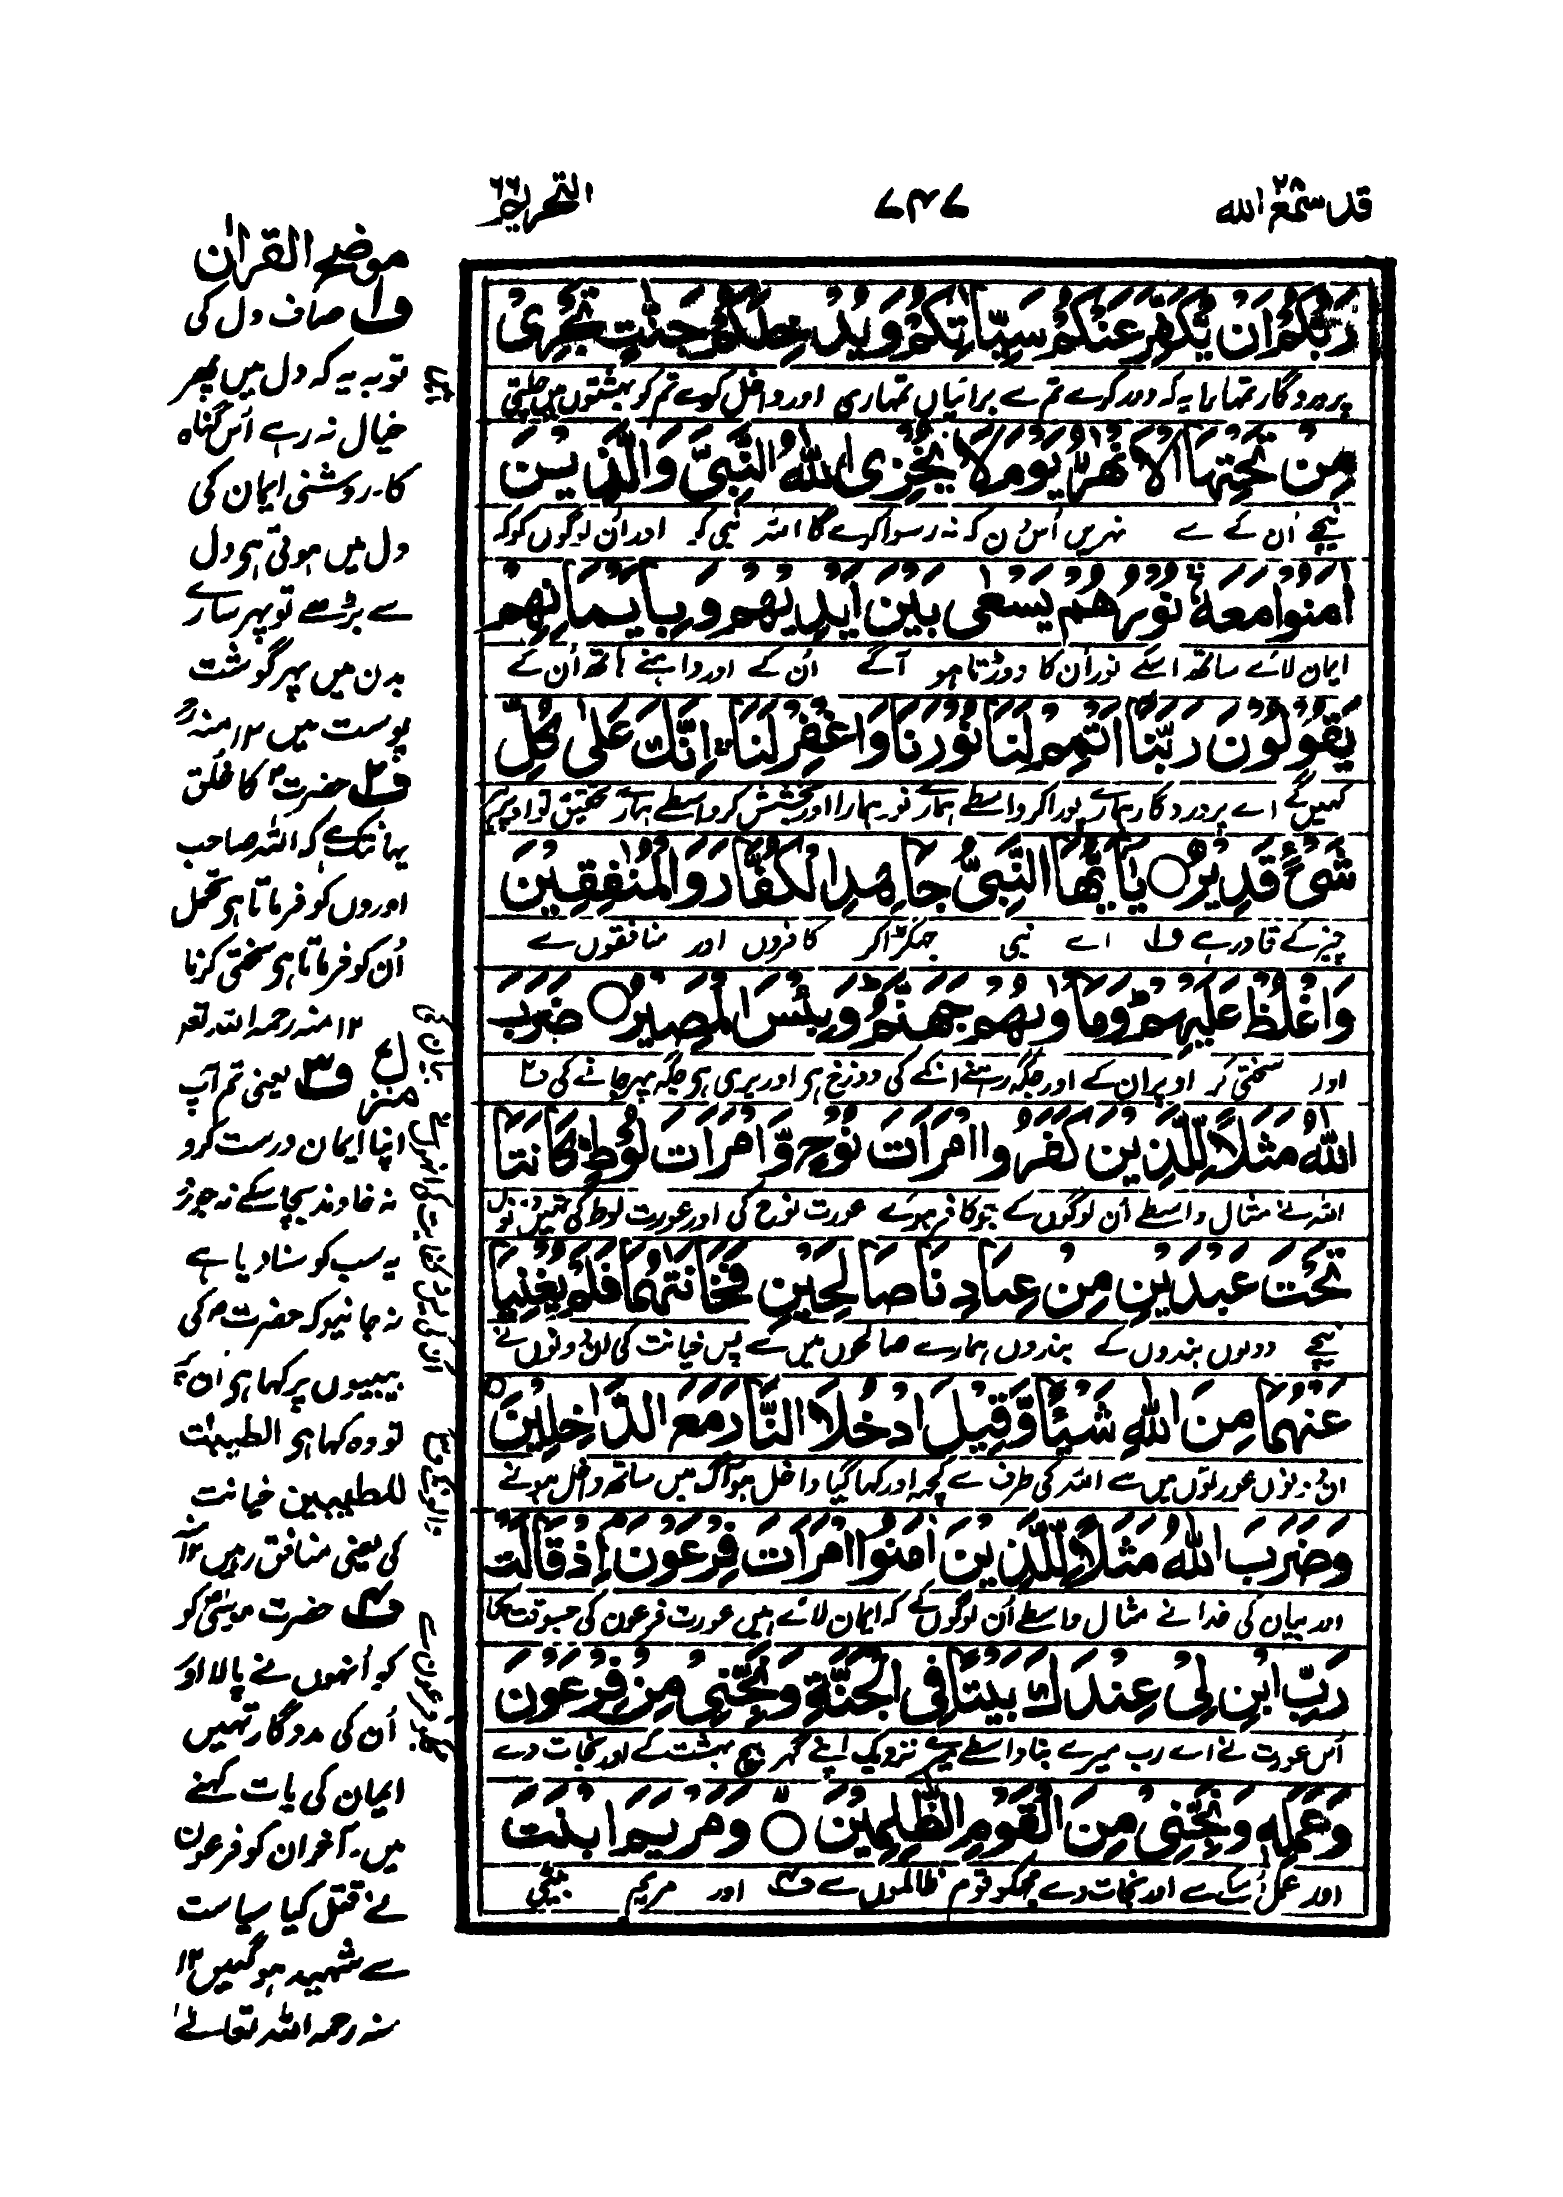 قد سمع الله ٢٨
٧٤٧
التحریم ٦٦
رَبُّكُمْ اَنْ يُّكَفِّرَ عَنْكُمْ سَيِّاٰتِكُمْ وَيُدْخِلَكُمْ جَنّٰتٍ تَجْرِیْ
پروردگار تمہارا یہ کہ دور کرے تم سے برائیاں تمہاری اور داخل کرے تم کو بہشتوں میں چلتی
مِنْ تَحْتِهَا الْاَنْهٰرُ يَوْمَ لَا يُخْزِی اللّٰهُ النَّبِیَّ وَالَّذِيْنَ
نیچے اُن کے سے نہریں اُس دن کہ نہ رسوا کرے گا اللہ نبی کو اور اُن لوگوں کو کہ
اٰمَنُوْا مَعَهٗ نُوْرُهُمْ يَسْعٰی بَيْنَ اَيْدِيْهِمْ وَبِاَيْمَانِهِمْ
ایمان لائے ساتھ اسکے نور اُن کا دوڑتا ہو آگے اُن کے اور داہنے ہاتھ اُن کے
يَقُوْلُوْنَ رَبَّنَا اَتْمِمْ لَنَا نُوْرَنَا وَاغْفِرْ لَنَا اِنَّكَ عَلٰی كُلِّ
کہیں گے اے پروردگار ہمارے پورا کر واسطے ہمارے نور ہمارا اور بخشش کر واسطے ہمارے تحقیق تو اوپر ہر
شَیْءٍ قَدِيْرٌ ○ يٰاَيُّهَا النَّبِیُّ جَاهِدِ الْكُفَّارَ وَالْمُنٰفِقِيْنَ
چیز کے قادر ہے ف۱ اے نبی جھگڑا کر کافروں اور منافقوں سے
وَاغْلُظْ عَلَيْهِمْ وَمَاْوٰىهُمْ جَهَنَّمُ وَبِئْسَ الْمَصِيْرُ ○ ضَرَبَ
اور سختی کر اوپر ان کے اور جگہ رہنے انکے کی دوزخ ہی اور بری ہی جگہ پھر جانے کی ف۲
اللّٰهُ مَثَلًا لِّلَّذِيْنَ كَفَرُوا امْرَاَتَ نُوْحٍ وَّامْرَاَتَ لُوْطٍ كَانَتَا
اللہ نے مثال واسطے اُن لوگوں کے جو کافر ہوئے عورت نوح کی اور عورت لوط کی تھیں دونوں
تَحْتَ عَبْدَيْنِ مِنْ عِبَادِنَا صَالِحَيْنِ فَخَانَتٰهُمَا فَلَمْ يُغْنِيَا
نیچے دونوں بندوں کے بندوں ہمارے صالحوں میں سے پس خیانت کی ان دونوں نے
عَنْهُمَا مِنَ اللّٰهِ شَيْئًا وَّقِيْلَ ادْخُلَا النَّارَ مَعَ الدّٰخِلِيْنَ ○
ان دونوں عورتوں میں سے اللہ کی طرف سے کچھ اور کہا گیا داخل ہو آگ میں ساتھ داخل ہونے
وَضَرَبَ اللّٰهُ مَثَلًا لِّلَّذِيْنَ اٰمَنُوا امْرَاَتَ فِرْعَوْنَ اِذْ قَالَتْ
اور بیان کی خدا نے مثال واسطے اُن لوگوں کے کہ ایمان لائے ہیں عورت فرعون کی جسوقت کہا
رَبِّ ابْنِ لِیْ عِنْدَكَ بَيْتًا فِی الْجَنَّةِ وَنَجِّنِیْ مِنْ فِرْعَوْنَ
اُس عورت نے اے رب میرے بنا واسطے میرے نزدیک اپنے گھر بیچ بہشت کے اور نجات دے
وَعَمَلِهٖ وَنَجِّنِیْ مِنَ الْقَوْمِ الظّٰلِمِيْنَ ○ وَمَرْيَمَ ابْنَتَ
اور عمل اُسکے سے اور نجات دے مجھکو قوم ظالموں سے ف۴ اور مریم بیٹی
موضح القرآن
ف۱ صاف دل کی
توبہ یہ کہ دل میں پھر
خیال نہ رہے اُس گناہ
کا۔ روشنی ایمان کی
دل میں ہوتی ہی دل
سے بڑھے تو پھر سارے
بدن میں پھر گوشت
پوست میں ۱۲ منہ رح
ف۲ حضرت ﷺ کا خُلق
یہانتک ہے کہ اللہ صاحب
اوروں کو فرماتا ہی تحمل
اُن کو فرماتا ہی سختی کرنا
۱۲ منہ رحمہ اللہ تعہ
ف۳ یعنی تم آپ
اپنا ایمان درست کرو
نہ خاوند بچا سکے نہ جورو
یہ سب کو سنا دیا ہے
نہ جانیو کہ حضرت ﷺ کی
بیبیوں پر کہا ہی اُن پر
تو وہ کہا ہی الطیبٰت
للطیبین خیانت
کی یعنی منافق رہیں ۱۲ منہ
ف۴ حضرت موسیٰ کو
کو اُنھوں نے پالا اور
اُن کی مددگار تھیں
ایمان کی بات کہنے
میں۔ آخر ان کو فرعون
نے قتل کیا سیاست
سے شہید ہو گئیں ۱۲
منہ رحمہ اللہ تعالےٰ